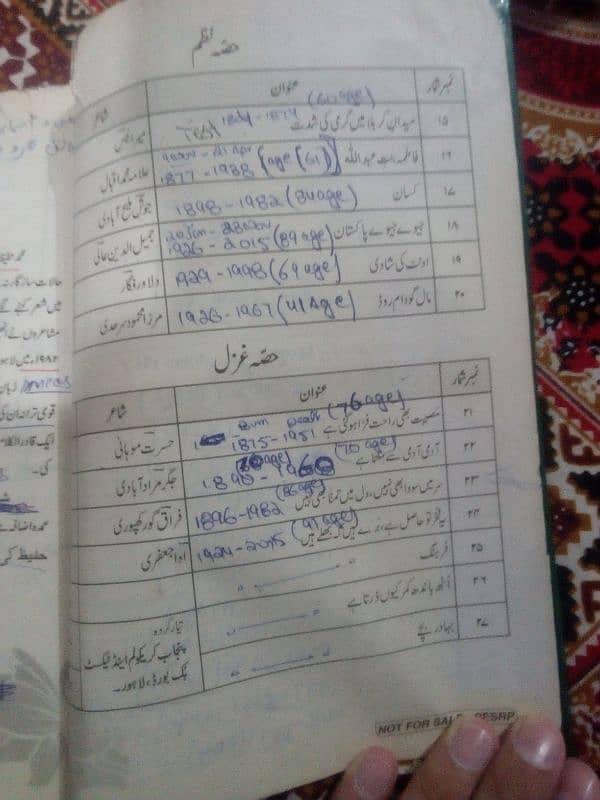 حصہ نظم
نمبر شمار عنوان شاعر
(60 age)
۱۵ میدانِ کربلا میں گرمی کی شدت Test 1874 میر انیس
9 Nov - 21 Apr
۱۶ فاطمہ بنت عبداللہ 1877 - 1938 (age (61)) علامہ محمد اقبال
۱۷ کسان 1898 - 1982 (84 age) جوش ملیح آبادی
۱۸ جیوے جیوے پاکستان 1926 - 2015 (89 age) جمیل الدین عالی
۱۹ اونٹ کی شادی 1929 - 1998 (69 age) دلاور فگار
۲۰ مال گودام روڈ 1926 - 1967 (41 Age) مرزا محمود سرحدی
حصہ غزل
نمبر شمار عنوان شاعر
(76 age)
۲۱ مصیبت بھی راحت فزا ہو گئی ہے Death 1875 - 1951 حسرت موہانی
۲۲ آدمی آدمی سے ملتا ہے (70 age) 1890 - 1960 جگر مراد آبادی
(86 age)
۲۳ سر میں سودا بھی نہیں، دل میں تمنا بھی نہیں 1896 - 1982 فراق گورکھپوری
(91 age)
۲۴ یہ فخر تو حاصل ہے، بُرے ہیں کہ بھلے ہیں 1924 - 2015 ادا جعفری
۲۵ فرہنگ
۲۶ اُٹھ باندھ کمر کیوں ڈرتا ہے
۲۷ بہادر بچے
تیار کردہ
پنجاب کریکولم اینڈ ٹیکسٹ
بک بورڈ، لاہور۔
NOT FOR SALE PESRP